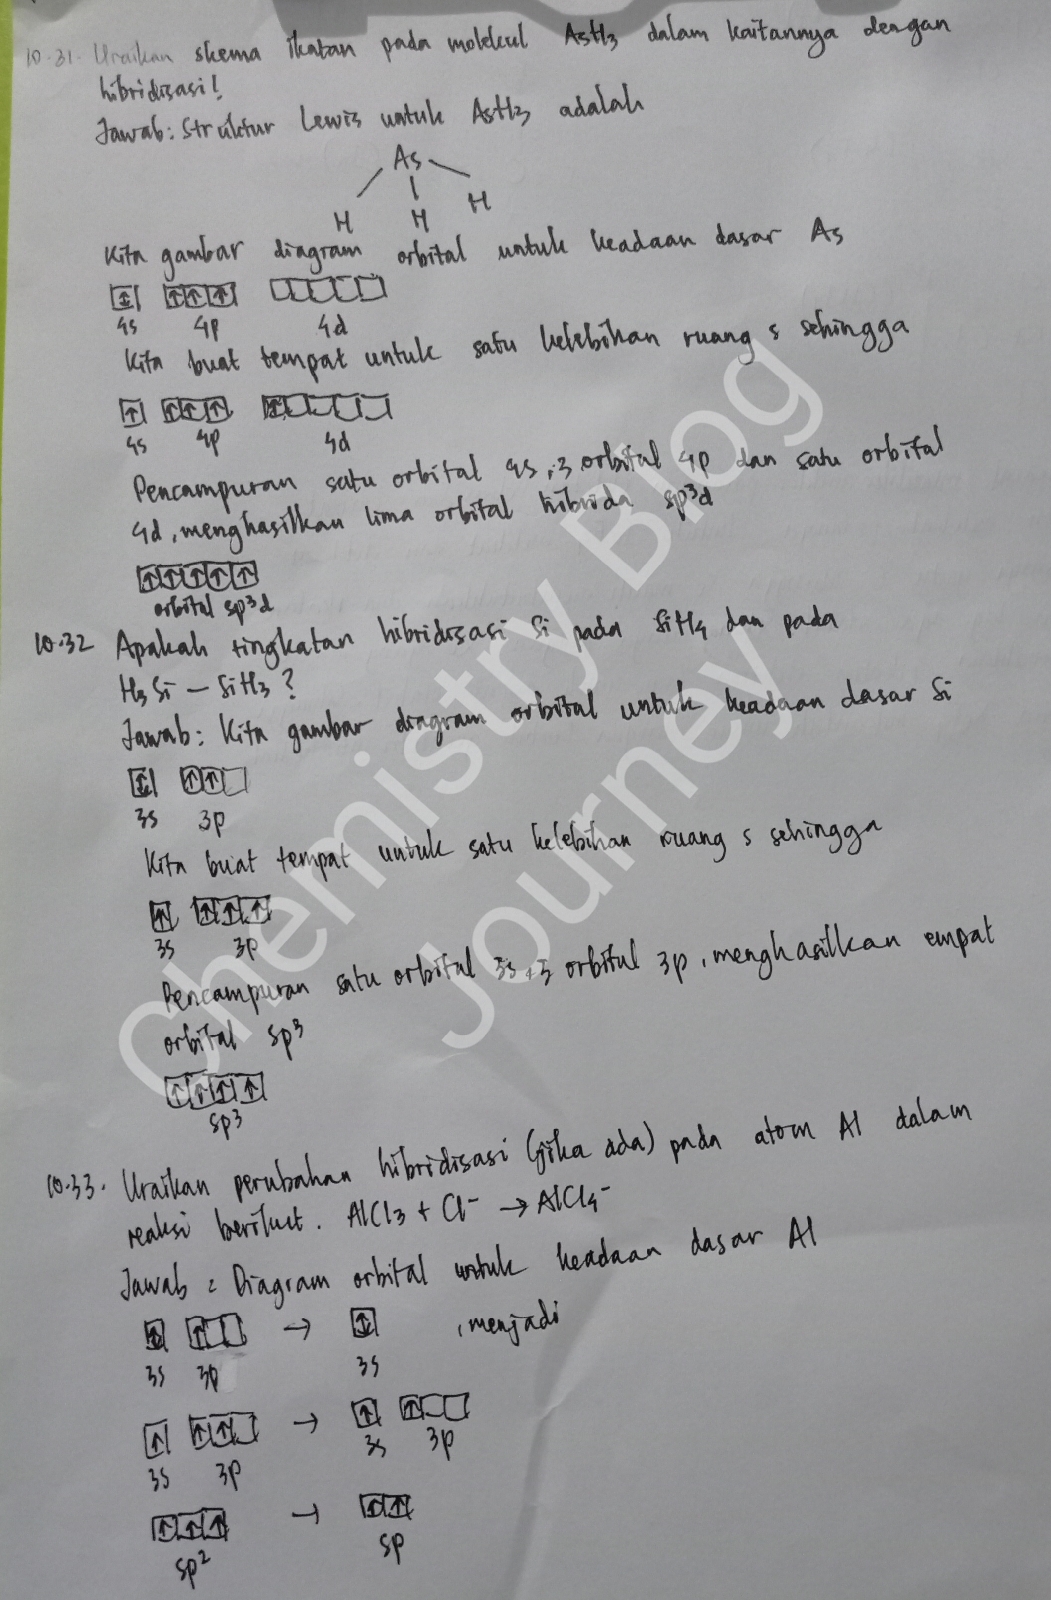 10.31. Uraikan skema ikatan pada molekul AsH3 dalam kaitannya dengan
hibridisasi!
Jawab: Struktur Lewis untuk AsH3 adalah
As
H H H
Kita gambar diagram orbital untuk keadaan dasar As
4s 4p 4d
Kita buat tempat untuk satu kelebihan ruang s sehingga
4s 4p 4d
Pencampuran satu orbital 4s, 3 orbital 4p dan satu orbital
4d, menghasilkan lima orbital hibrida sp³d
orbital sp³d
10.32 Apakah tingkatan hibridisasi Si pada SiH4 dan pada
H3Si – SiH3?
Jawab: Kita gambar diagram orbital untuk keadaan dasar Si
3s 3p
Kita buat tempat untuk satu kelebihan ruang s sehingga
3s 3p
Pencampuran satu orbital 3s, 3 orbital 3p, menghasilkan empat
orbital sp³
sp³
10.33. Uraikan perubahan hibridisasi (jika ada) pada atom Al dalam
reaksi berikut. AlCl3 + Cl⁻ → AlCl4⁻
Jawab : Diagram orbital untuk keadaan dasar Al
→ , menjadi
3s 3p 3s
→
3s 3p 3s 3p
→
sp² sp
Chemistry Blog
Journey